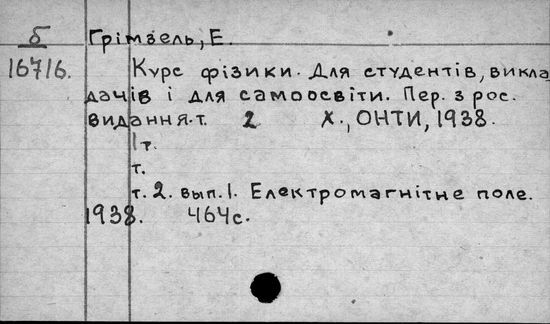 б Грімзель, Е.
16716. Курс фізики. Для студентів, викла
дачів і для самоосвіти. Пер. з рос.
видання. т. 2 Х., ОНТИ, 1938.
1 т.
т.
т. 2. вып. 1. Електромагнітне поле.
1938. 464с.